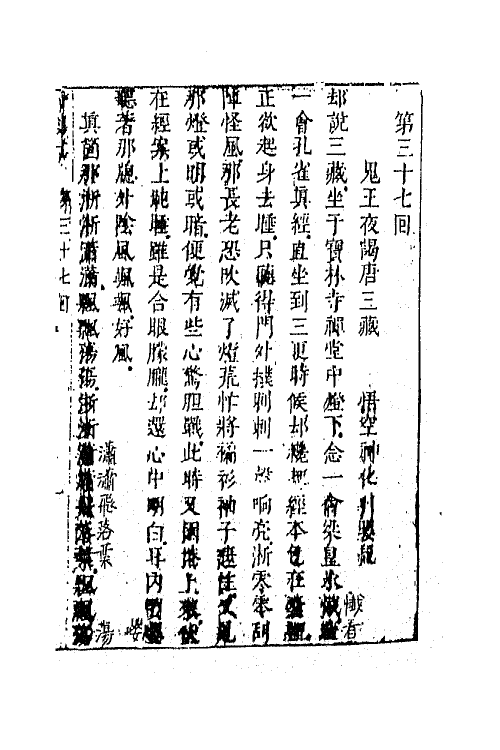 第三十七回
鬼王夜謁唐三藏　悟空神化引嬰兒
却說三藏坐于寶林寺禪堂中燈下念一會梁皇水懺看
一會孔雀眞經直坐到三更時候却纔把經本包在囊裡
正欲起身去睡只聽得門外撲剌剌一聲响亮淅零零刮
陣怪風那長老恐吹滅了燈荒忙將褊衫袖子遮住又見
那燈或明或暗便覺有些心驚胆戰此時又困倦上來伏
在經案上盹睡雖是合眼朦朧却還心中明白耳內嚶嚶
聽着那窻外陰風颯颯好風
眞箇那淅淅瀟瀟飄飄蕩蕩淅淅瀟瀟飛落葉飄飄蕩
第三十七回
懺看
嚶
瀟瀟飛落葉
蕩